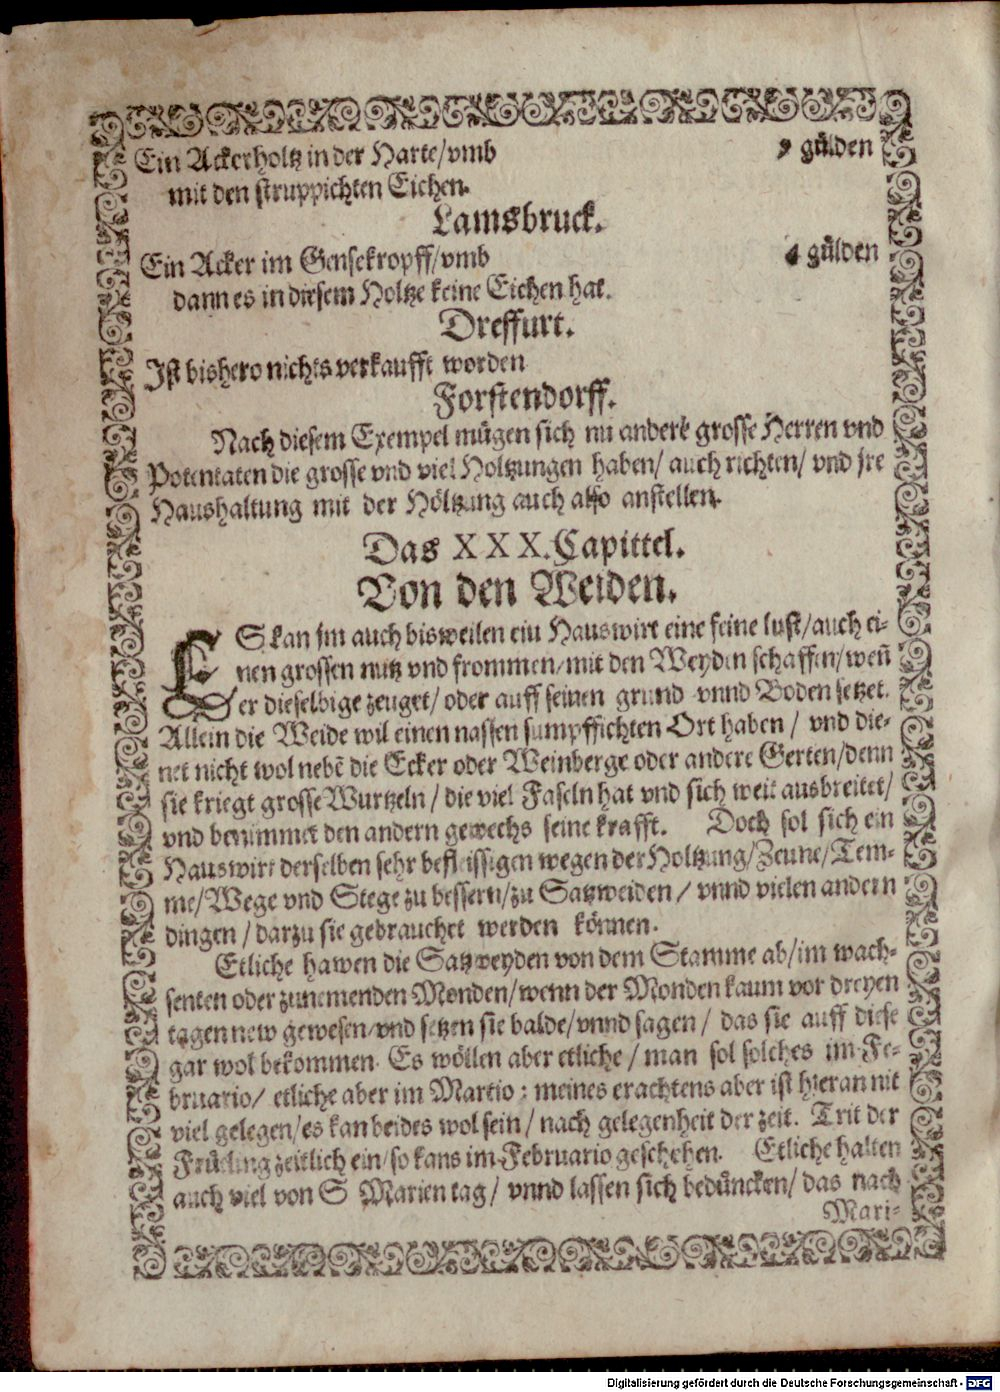 Ein Ackerholtz in der Harte/vmb 9 gülden
mit den struppichten Eichen.
Lamsbruck.
Ein Acker im Gensekropff/vmb 4 gülden
dann es in diesem Holtze keine Eichen hat.
Dreffurt.
Ist bishero nichts verkaufft worden
Forstendorff.
Nach diesem Exempel mügen sich nu anderē grosse Herren vnd
Potentaten die grosse vnd viel Holtzungen haben/ auch richten/ vnd jre
Haushaltung mit der Höltzung auch also anstellen.
Das XXX. Capittel.
Von den Weiden.
ES kan jm auch bisweilen ein Hauswirt eine feine lust/auch ei-
nen grossen nutz vnd frommen/mit den Weyden schaffen/weñ
Der dieselbige zeuget/ oder auff seinen grund vnnd Boden setzet.
Allein die Weide wil einen nassen sumpffichten Ort haben / vnd die-
net nicht wol nebē die Ecker oder Weinberge oder andere Gerten/denn
sie kriegt grosse Wurtzeln / die viel Faseln hat vnd sich weit ausbreitet/
vnd benimmet den andern gewechs seine krafft. Doch sol sich ein
Hauswirt derselben sehr befleissigen wegen der Holtzung/Zeune/Tem-
me/Wege vnd Stege zu bessern/zu Satzweiden / vnnd vielen andern
dingen / darzu sie gebrauchet werden können.
Etliche hawen die Satzweyden von dem Stamme ab/im wach-
senten oder zunemenden Monden/wenn der Monden kaum vor dreyen
tagen new gewesen/vnd setzen sie balde/vnnd sagen / das sie auff diese
gar wol bekommen. Es wöllen aber etliche / man sol solches im Fe-
bruario/ etliche aber im Martio: meines erachtens aber ist hieran nit
viel gelegen/es kan beides wol sein / nach gelegenheit der zeit. Trit der
Früeling zeitlich ein/so kans im Februario geschehen. Etliche halten
auch viel von S Marien tag/ vnnd lassen sich bedüncken/ das nach
Mari-
Digitalisierung gefördert durch die Deutsche Forschungsgemeinschaft - DFG